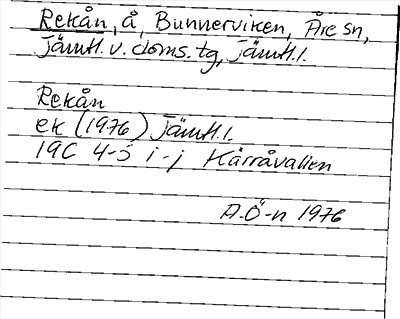 Rekån, å, Bunnerviken, Åre sn,
Jämtl. v. doms. tg, Jämtl. l.
Rekån
ek (1976) Jämtl. l.
19C 4-5 i-j Kårråvallen
A.Ö-n 1976